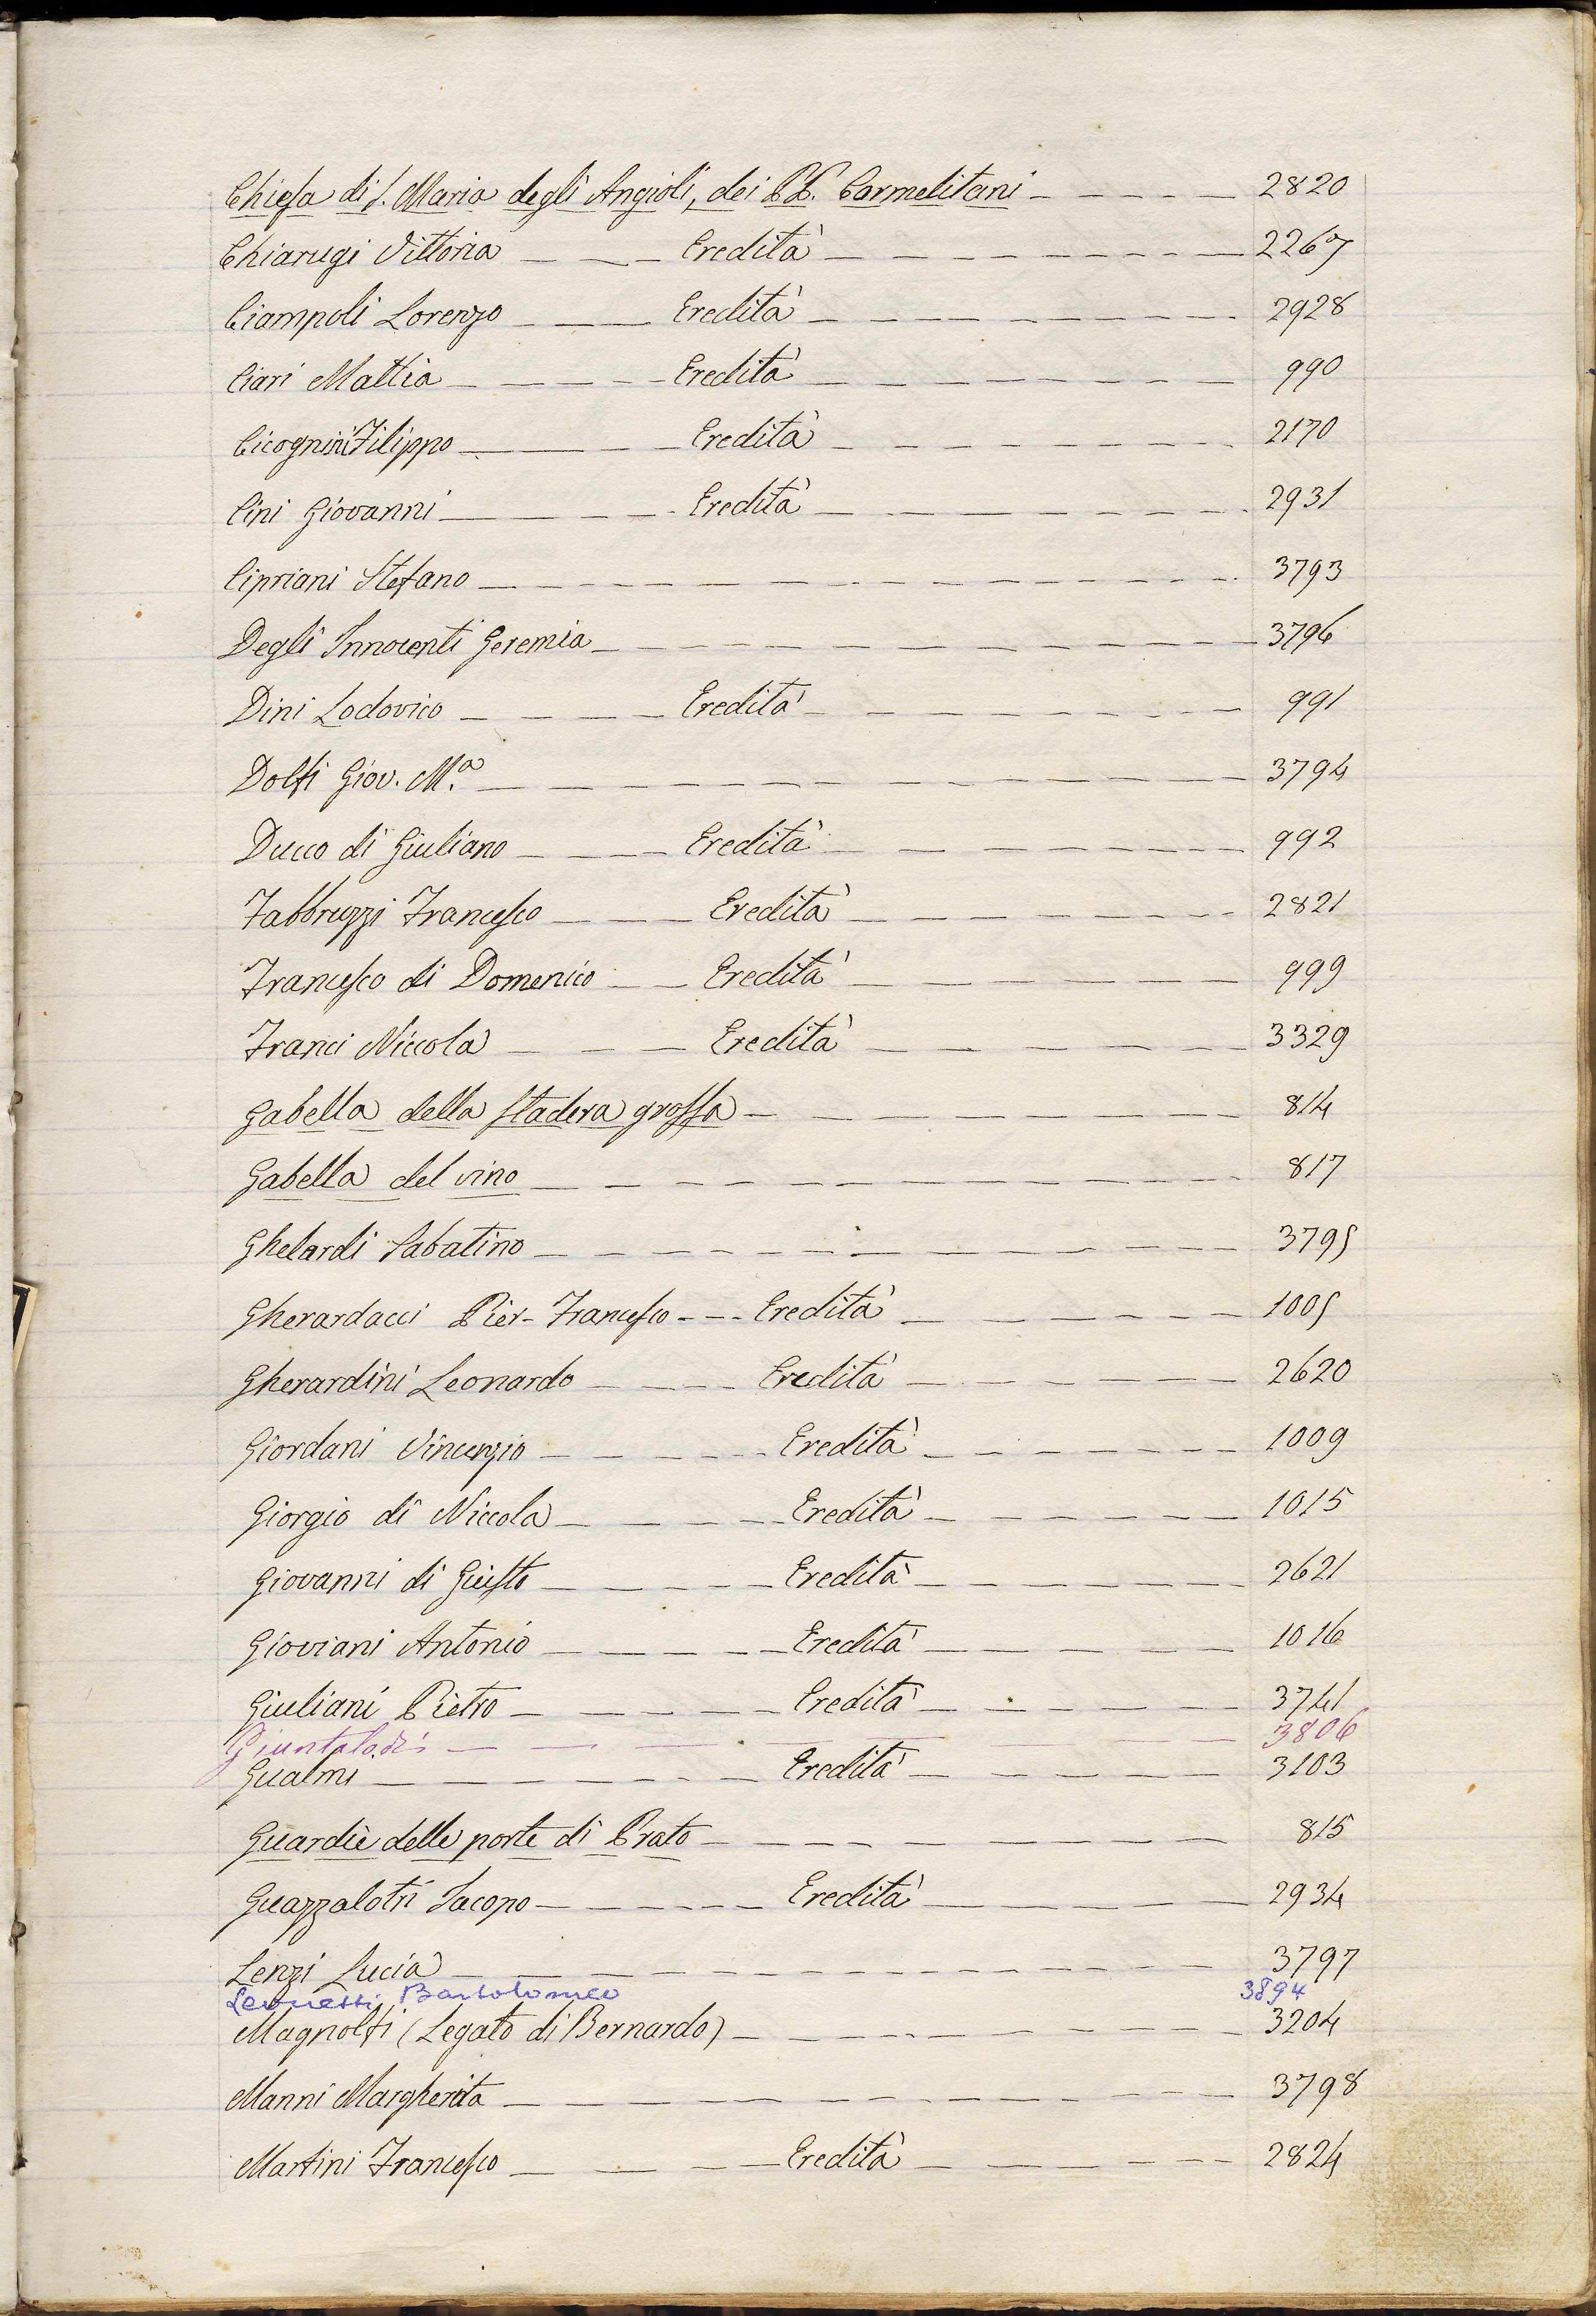 Chiesa di S. Maria degli Angioli, dei PP. Carmelitani - - - - - 2820
Chiarugi Vittoria - - - - Eredità - - - - - 2267
Ciampoli Lorenzo - - - - Eredità - - - - - 2928
Ciari Mattia - - - - Eredità - - - - - 990
Cicognini Filippo - - - - Eredità - - - - - 2170
Cini Giovanni - - - - Eredità - - - - - 2931
Cipriani Stefano - - - - - 3793
Degli Innocenti Geremia - - - - - 3796
Dini Lodovico - - - - Eredità - - - - - 991
Dolfi Giov. M.a - - - - - 3794
Ducco di Giuliano - - - - Eredità - - - - - 992
Fabbruzzi Francesco - - - - Eredità - - - - - 2821
Francesco di Domenico - - Eredità - - - - - 999
Franci Niccola - - - - Eredità - - - - - 3329
Gabella della stadera grossa - - - - - 814
Gabella del vino - - - - - 817
Ghelardi Sabatino - - - - - 3795
Gherardacci Pier-Francesco - - - Eredità - - - - - 1005
Gherardini Leonardo - - - - Eredità - - - - - 2620
Giordani Vincenzio - - - - Eredità - - - - - 1009
Giorgio di Niccola - - - - Eredità - - - - - 1015
Giovanni di Giusto - - - - Eredità - - - - - 2621
Gioviani Antonio - - - - Eredità - - - - - 1016
Giuliani Pietro - - - - Eredità - - - - - 3741
Giuntalodi - - - - - 3806
Gualmi - - - - Eredità - - - - - 3103
Guardie delle porte di Prato - - - - - 815
Guazzalotri Iacopo - - - - Eredità - - - - - 2934
Lenzi Lucia - - - - - 3797
Bartolomeo 3894
Magnolfi (Legato di Bernardo) - - - - - 3204
Manni Margherita - - - - - 3798
Martini Francesco - - - - Eredità - - - - - 2824